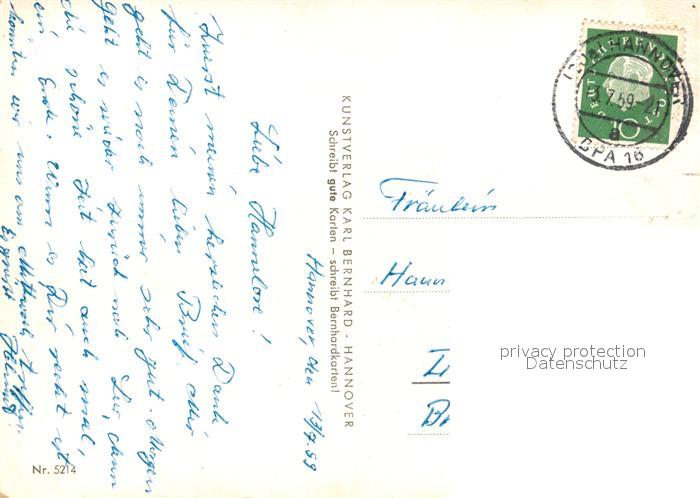 Hannover, den 13/7.59
Liebe Hannelore!
Zuerst meinen herzlichen Dank
für Deinen lieben Brief. Mir
geht es noch immer sehr gut. Morgen
geht es wieder zurück nach , denn
die schöne Zeit hat auch mal,
ein Ende. Wenn es Dir recht ist
könnten wir uns am Mittwoch treffen.
Es grüßt
KUNSTVERLAG KARL BERNHARD - HANNOVER
Schreibt gute Karten – schreibt Bernhardkarten!
Nr. 5214
HANNOVER
.7.59
a
BPA 16
DEUTSCHE BUNDESPOST
10
Fräulein
Hann
privacy protection
Datenschutz